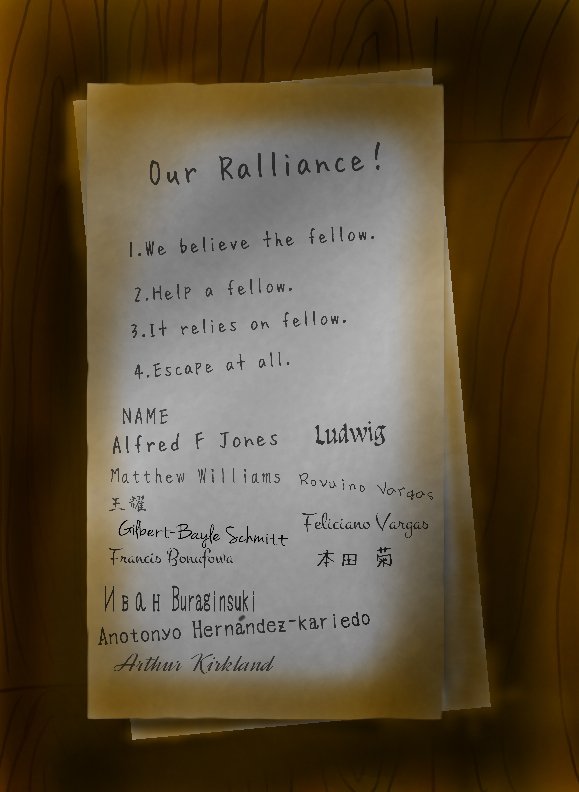 Our Ralliance!
1.We believe the fellow.
2.Help a fellow.
3.It relies on fellow.
4.Escape at all.
NAME
Alfred F Jones
Matthew Williams
王耀
Gilbert-Bayle Schmitt
Francis Bonufowa
Иван Buraginsuki
Anotonyo Hernández-kariedo
Arthur Kirkland
Ludwig
Rovuino Vargas
Feliciano Vargas
本田 菊